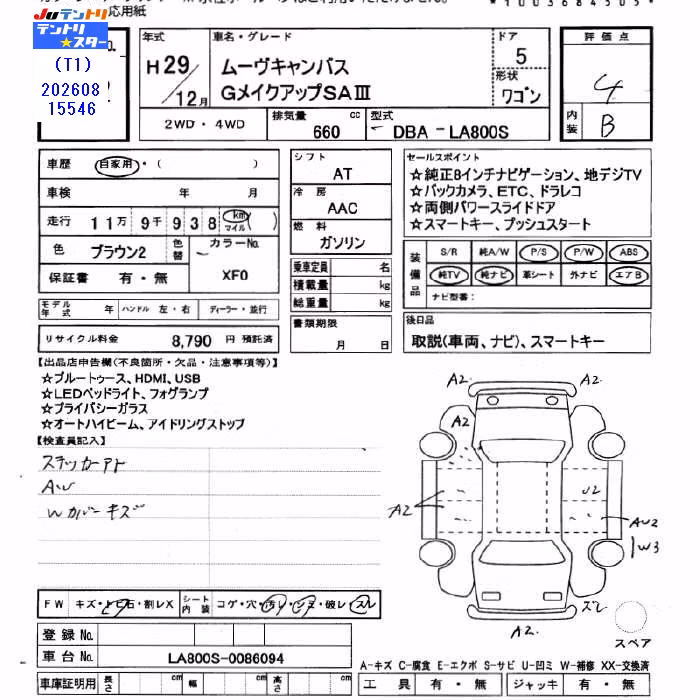 応用紙
*10036845305*
Juテントリ
テントリ★スター
(T1)
202608
15546
年式 車名・グレード ドア 評価点
H29/12月 ムーヴキャンバス 5 4
GメイクアップSAⅢ 形状 ワゴン 内装 B
2WD・4WD 排気量 660 cc 型式 DBA-LA800S
車歴 自家用・( )
車検 年 月
走行 11万9千938 km マイル( )
色 ブラウン2 色替 カラーNo. XF0
保証書 有・無
モデル年式 年 ハンドル 左・右 ディーラー・並行
リサイクル料金 8,790 円 預託済
シフト AT
冷房 AAC
燃料 ガソリン
乗車定員 名
積載量 kg
総重量 kg
書類期限 月 日
セールスポイント
☆純正8インチナビゲーション、地デジTV
☆バックカメラ、ETC、ドラレコ
☆両側パワースライドドア
☆スマートキー、プッシュスタート
装備品 S/R 純A/W P/S P/W ABS
純TV 純ナビ 革シート 外ナビ エアB
ナビ型番:
後日品
取説(車両、ナビ)、スマートキー
【出品店申告欄(不良箇所・欠品・注意事項等)】
☆ブルートゥース、HDMI、USB
☆LEDヘッドライト、フォグランプ
☆プライバシーガラス
☆オートハイビーム、アイドリングストップ
【検査員記入】
ステッカーアト
AW
Wカバーキズ
A2 A2
A2
A2 U2
AU2
W3
A2 ズレ
スペア
FW キズ・トビ石・割レX シート内装 コゲ・穴・汚レ・シミ・破レ・スレ
登録No.
車台No. LA800S-0086094
A-キズ C-腐食 E-エクボ S-サビ U-凹ミ W-補修 XX-交換済
車庫証明用 長さ cm 幅 cm 高さ cm
工具 有・無 ジャッキ 有・無